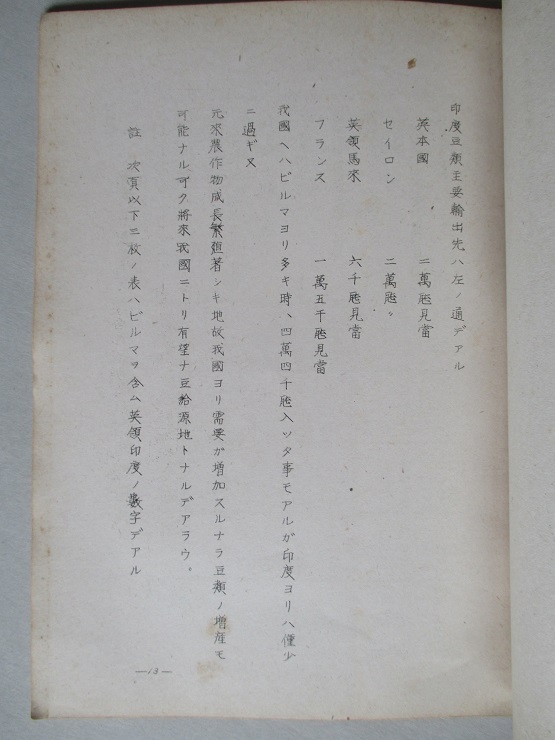 印度豆類主要輸出先ハ左ノ通デアル
英本國 二萬瓲見當
セイロン 二萬瓲〃
英領馬來 六千瓲見當
フランス 一萬五千瓲見當
我國ヘハビルマヨリ多キ時ハ四萬四千瓲入ツタ事モアルガ印度ヨリハ僅少
ニ過ギヌ
元來農作物成長繁殖著シキ地故我國ヨリ需要ガ増加スルナラ豆類ノ増産モ
可能ナル可ク將來我國ニトリ有望ナ豆給源地トナルデアラウ。
註 次頁以下三枚ノ表ハビルマヲ含ム英領印度ノ數字デアル